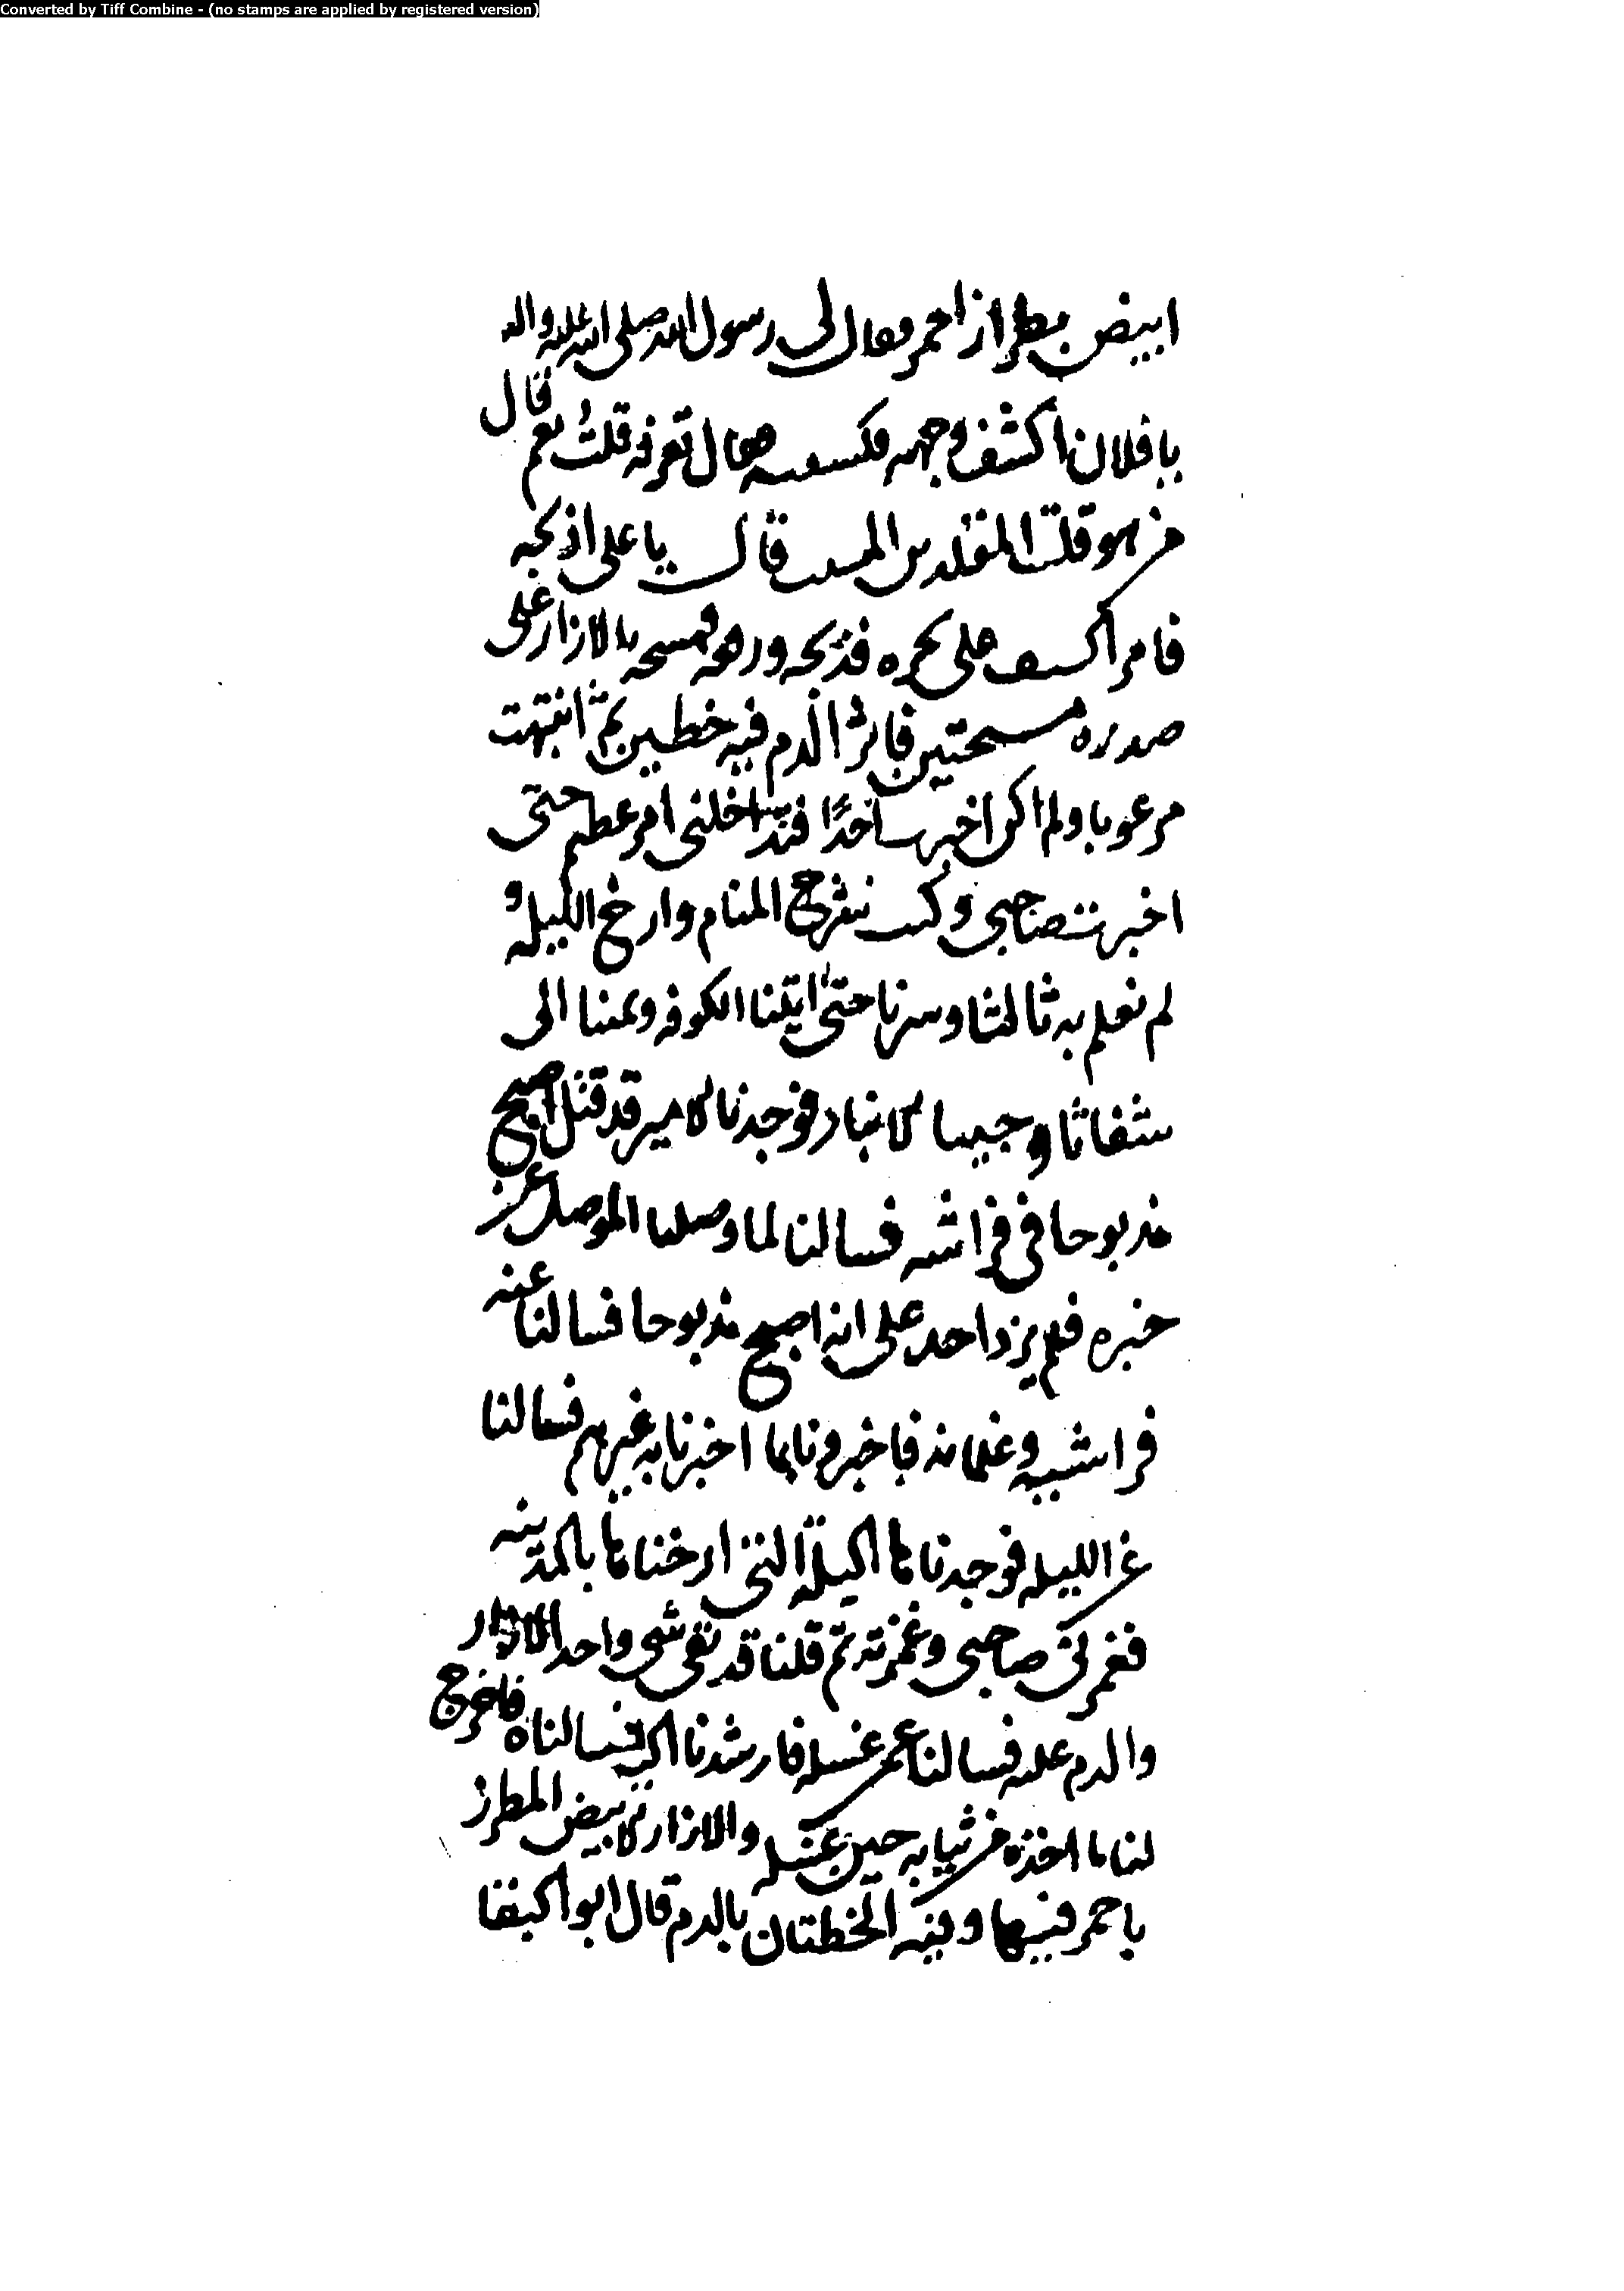 Converted by Tiff Combine - (no stamps are applied by registered version)
ابيض بطراز احمر وقال لى رسول الله صلى الله عليه واله
يا فلان اكشف وجهه فكشفته فقال تعرفه قلت نعم قال
من هو قلت المقلد بن المسيب قال يا على اذبحه
فامر السيف على نحره فذبحه ورفعه فمسحه بالازار على
صدره مسحتين فاثر الدم فيه خطين ثم انتبهت
مرعوبا ولم اكن اخبرت احدا فتداخلنى امر عظيم حتى
اخبرت صاحبى وكتبت شرح المنام وارخ الليله و
لم نعلم به ثالثا وسرنا حتى اتينا الكوفه ويممنا الى
شفاثا وجينا الانبار فوجدنا الامير قد قتل اصبح
مذبوحا فى فراشه فسالنا لما وصلنا الموصل عن
خبره فلم يزد احد على انه اصبح مذبوحا فسالنا عنه
فراشيه وغلمانه فاخبرونا بما اخبرنا به غيرهم فسالنا
عن الليله فوجدناها الليلة التى ارخناها بالمدينه
فغمزنى صاحبى وغمزته ثم قلنا قد بقى شى واحد الازار
والدم عليه فسالنا عمن غسله فارشدنا اليه فسالناه فاخرج
لنا ما اخذه من ثيابه حين غسله والازار الابيض المطرز
باحمر فيها وفيه الخطتان بالدم قال ابو البقا